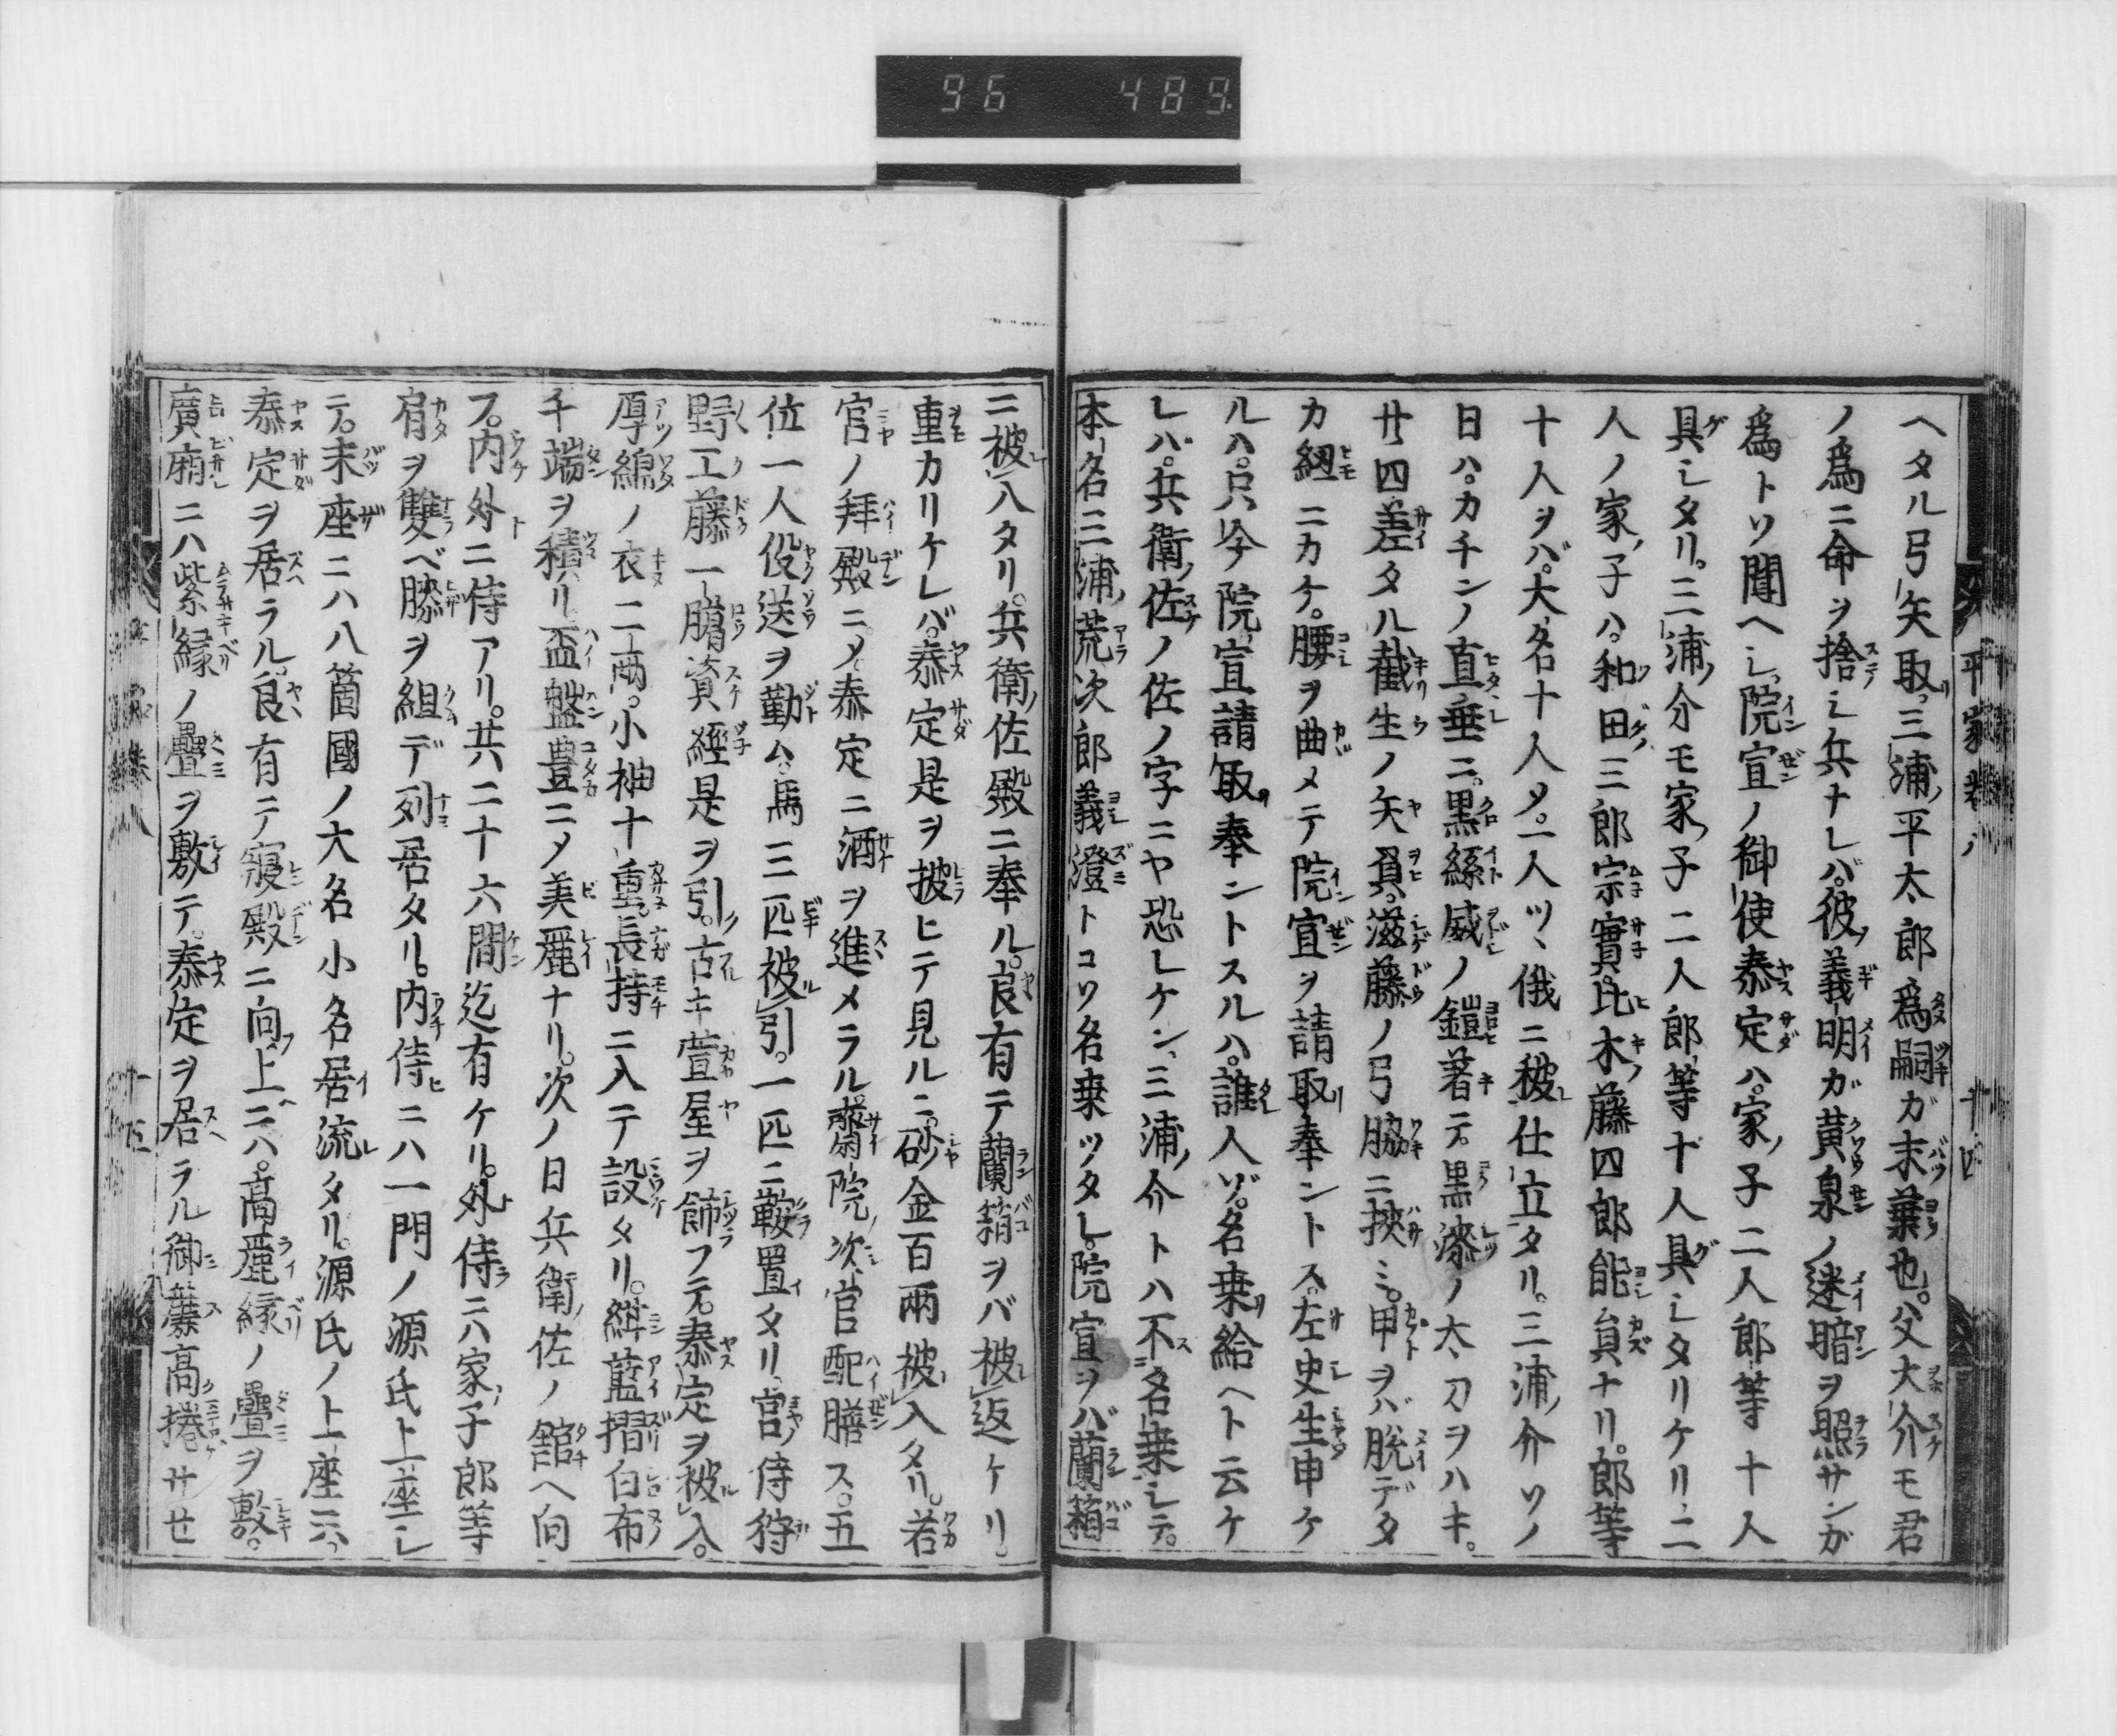 96 489
平家巻八
十四
ヘタル弓矢取。三浦ノ平太郎為嗣ガ末葉也。父大介モ君
ノ為ニ命ヲ捨シ兵ナレバ。彼ノ義明ガ黄泉ノ迷暗ヲ照サンガ
為トソ聞ヘシ。院宣ノ御使泰定ハ。家ノ子二人郎等十人
具シタリ。三浦ノ介モ家ノ子二人郎等十人具シタリケリ。二
人ノ家ノ子ハ。和田ノ三郎宗實。比木ノ藤四郎能員ナリ。郎等
十人ヲバ。大名十人メ。一人ツヽ俄ニ被仕立タリ。三浦ノ介ソノ
日ハ。カチンノ直垂ニ。黒絲威ノ鎧着テ。黒漆ノ太刀ヲハキ。
廿四差タル截生ノ矢負。滋藤ノ弓脇ニ挾ミ。甲ヲバ脱デタ
カ紐ニカケ。腰ヲ曲メテ院宣ヲ請取奉ントス。左史生申ケ
ルハ。只今院宣請取奉ントスルハ。誰人ゾ。名乗給ヘト云ケ
レハ。兵衛ノ佐ノ佐ノ字ニヤ恐レケン。三浦ノ介トハ不名乗シテ。
本名三浦ノ荒次郎義澄トコソ名乗ツタレ。院宣ヲバ蘭箱
ニ被入タリ。兵衛ノ佐殿ニ奉ル。良有テ蘭箱ヲバ被返ケリ。
重カリケレバ。泰定是ヲ披ヒテ見ルニ。砂金百兩被入タリ。若
宮ノ拜殿ニメ。泰定ニ酒ヲ進メラル。齋院ノ次官配膳ス。五
位一人役送ヲ勤ム。馬三匹被引。一匹ニ鞍置タリ。宮ノ侍狩
野工藤一臈資經是ヲ引。古キ萱屋ヲ飾フテ。泰定ヲ被入。
厚綿ノ衣二兩。小袖十重。長持ニ入テ設タリ。紺藍摺白布
千端ヲ積リ。盃盤豊ニメ美麗ナリ。次ノ日兵衛ノ佐ノ舘ヘ向
フ。内外ニ侍アリ。共ニ十六間迄有ケリ。外侍ニハ家ノ子郎等
肩ヲ雙ベ膝ヲ組デ列居タリ。内侍ニハ一門ノ源氏上座シ
テ。末座ニハ八箇國ノ大名小名居流タリ。源氏ノ上座ニハ。
泰定ヲ居ラル。良有テ寢殿ニ向フ。上ニハ。高麗縁ノ疊ヲ敷。
廣廂ニハ紫縁ノ疊ヲ敷テ。泰定ヲ居ラル。御簾高捲サセ